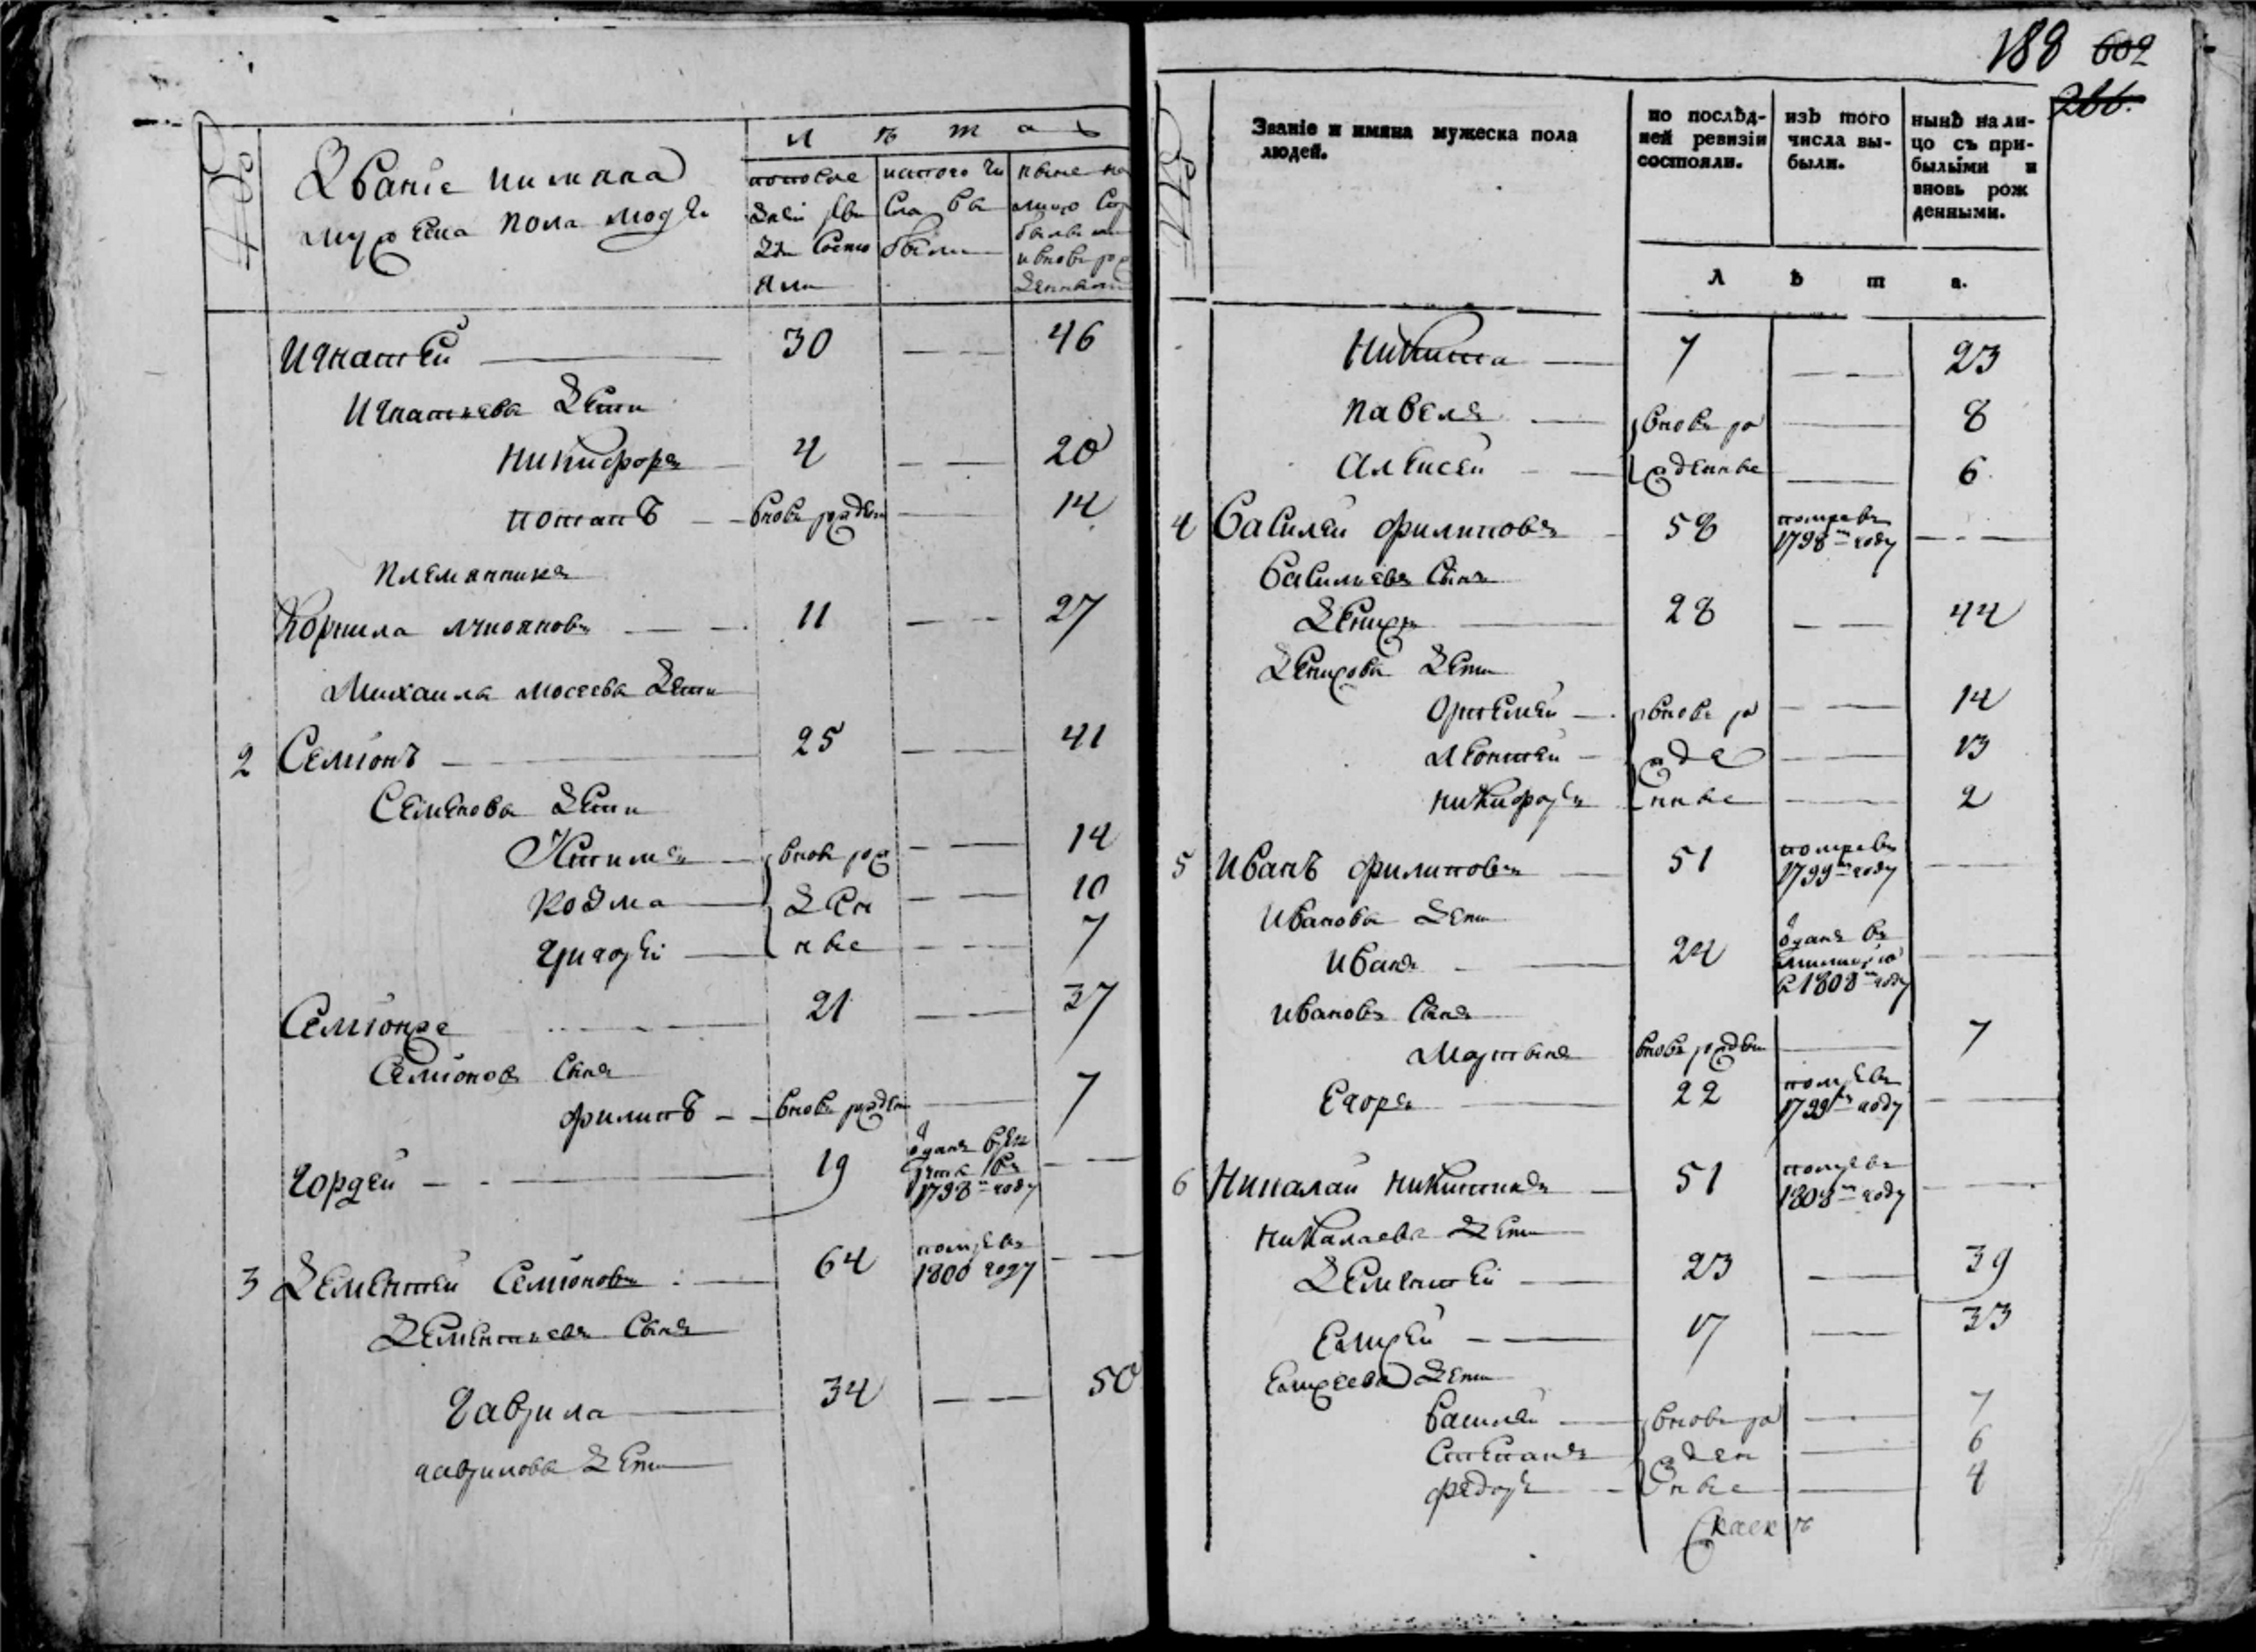 №
Званіе и имяна
мужеска пола людей
Л ѣ т а
по после
дней реви
зіи состо
яли
ис того чи
сла вы
были
ныне на
лицо
и вновь рож
денными
Игнатей — 30 — — 46
Игнатьева дети
Никифоръ — 4 — — 20
Потапъ — вновь рожден — 14
Племянникъ
Корнила — 11 — — 27
Михаила Мосеева дети
2 Семіонъ — 25 — — 41
Семенова дети
вновь рож — — 14
Козма — ден — — 10
Григорей — ные — — 7
Семіонже — 21 — — 37
Семіоновъ сынъ
Филипъ — вновь рожден — 7
Гордей — 19 отданъ в рек
руты въ
1798м году — —
3 Дементей Семіоновъ — 64 помре въ
1800 году — —
Дементьевъ сынъ
Гаврила — 34 — — 50
Гаврилова дети
188 602
266.
№
Званіе и имяна мужеска пола
людей.
по послѣд-
ней ревизіи
состояли.
изъ того
числа вы-
были.
нынѣ на ли-
цо съ при-
былыми и
вновь рож
денными.
Л ѣ т а.
Никита — 7 — — 23
Павелъ — вновь ро — 8
Алексей — жденные — 6
4 Василей Филиповъ — 58 помре въ
1798м году — — —
Васильевъ сынъ
Денисъ — 28 — — 44
Денисова дети
Ортемей — вновь ро — — 14
Леонтей — жде — — 13
Никифоръ — нные — — 2
5 Иванъ Филиповъ — 51 помре въ
1799м году — —
Иванова дети
Иванъ — 24 отданъ въ
милицію
в 1808м году — —
Ивановъ сынъ
Мартынъ вновь рожден — 7
Егоръ — 22 помре въ
1799м году — —
6 Николай Никитинъ — 51 помре въ
1808м году — —
Николаева дети
Дементей — 23 — 39
Елисей — 17 — 33
Елисеева дети
Василей — вновь ро — 7
Степанъ — жден — 6
Федоръ — ные — 4